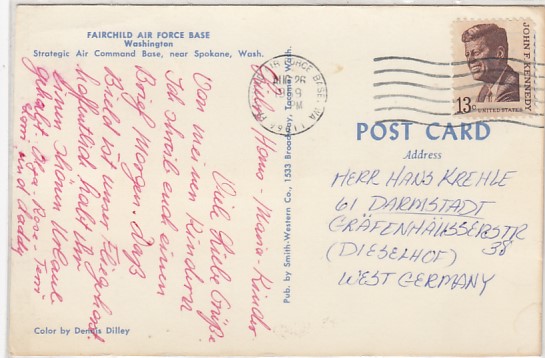 FAIRCHILD AIR FORCE BASE
Washington
Strategic Air Command Base, near Spokane, Wash.
Hans - Maria - Kinder
Viele Liebe Grüße
Von meinen Kindern
Ich schreib euch einen
Brief Morgen. Das
Bild ist unser Fliegerhorst
hoffentlich habt ihr
einen schönen Urlaub
gehabt. Olga - Rose - Terri
Tom und Daddy
Color by Dennis Dilley
Pub. by Smith-Western Co., 1533 Broadway, Tacoma, Wash.
AIR FORCE BASE, WA
AUG 26
PM
JOHN F. KENNEDY
13c UNITED STATES
POST CARD
Address
HERR HANS KREHLE
61 DARMSTADT
GRÄFENHÄUSSERSTR
38
(DIESELHOF)
WEST GERMANY